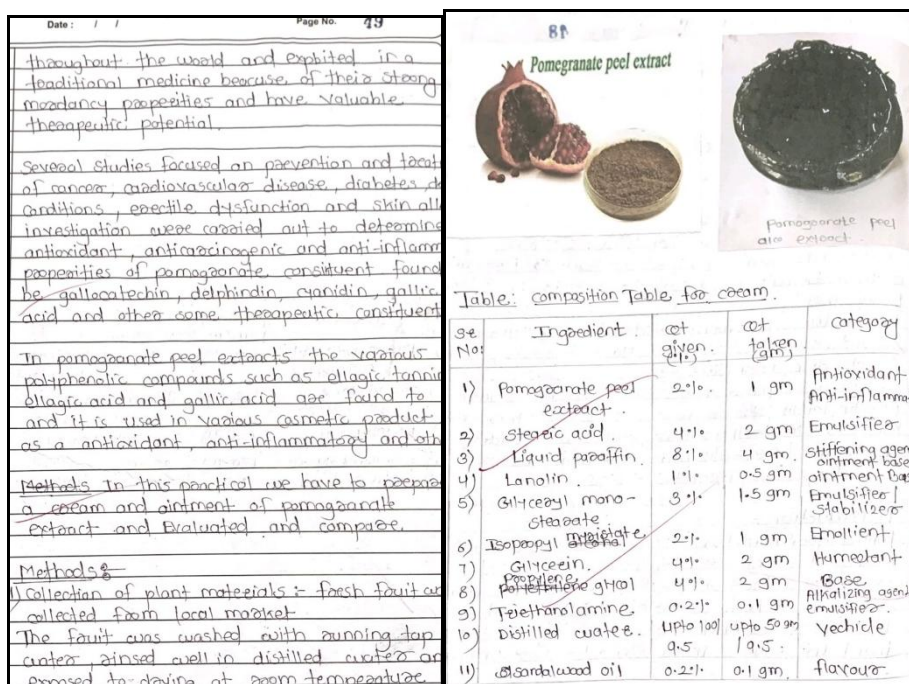 Date : / / Page No. 79
throughout the world and exphited in a
traditional medicine because of their strong
mordancy properities and have valuable
therapeutic potential.
Several studies focused on prevention and treat
of cancer, cardiovascular disease, diabetes, de
conditions, erectile dysfunction and skin all
investigation were carried out to determine
antioxidant, anticarcinogenic and anti-inflamm
properities of pomogranate constituent found
be gallocatechin, delphindin, cyanidin, gallic
acid and other some therapeutic constituent
In pomogranate peel extracts the various
polyphenolic compounds such as ellagic tannin
ellagic acid and gallic acid are found to
and it is used in various cosmetic product
as a antioxidant anti-inflammatory and oth
Methods In this practical we have to prepar
a cream and ointment of pomogranate
extract and Evaluated and compare.
Methods :-
1) Collection of plant matereials :- fresh fruit w
collected from local market
The fruit was washed with running tap
water, rinsed well in distilled water an
exposed to drying at room temperature
81
Pomegranate peel extract
Pomogranate peel
extract
Table: Composition Table for cream.
Sr. No: Ingredient qt given (%) qt taken (gm) category
1) Pomogranate peel extract. 2% 1 gm Antioxidant Anti-inflamma
2) Stearic acid 4% 2 gm Emulsifier
3) Liquid paraffin 8% 4 gm Stiffening agen ointment base
4) Lanolin 1% 0.5 gm ointment Bas
5) Glyceryl mono-stearate 3% 1.5 gm Emulsifier/ stabilizer
6) Isopropyl myristate 2% 1 gm Emollient
7) Glycerin 4% 2 gm Humectant
8) Propylene glycol 4% 2 gm Base
9) Triethanolamine 0.2% 0.1 gm Alkalizing agent emulsifier.
10) Distilled water. upto 100/ 9.5 upto 50 gm / 9.5 vechicle
11) Sandalwood oil 0.2% 0.1 gm. flavour.